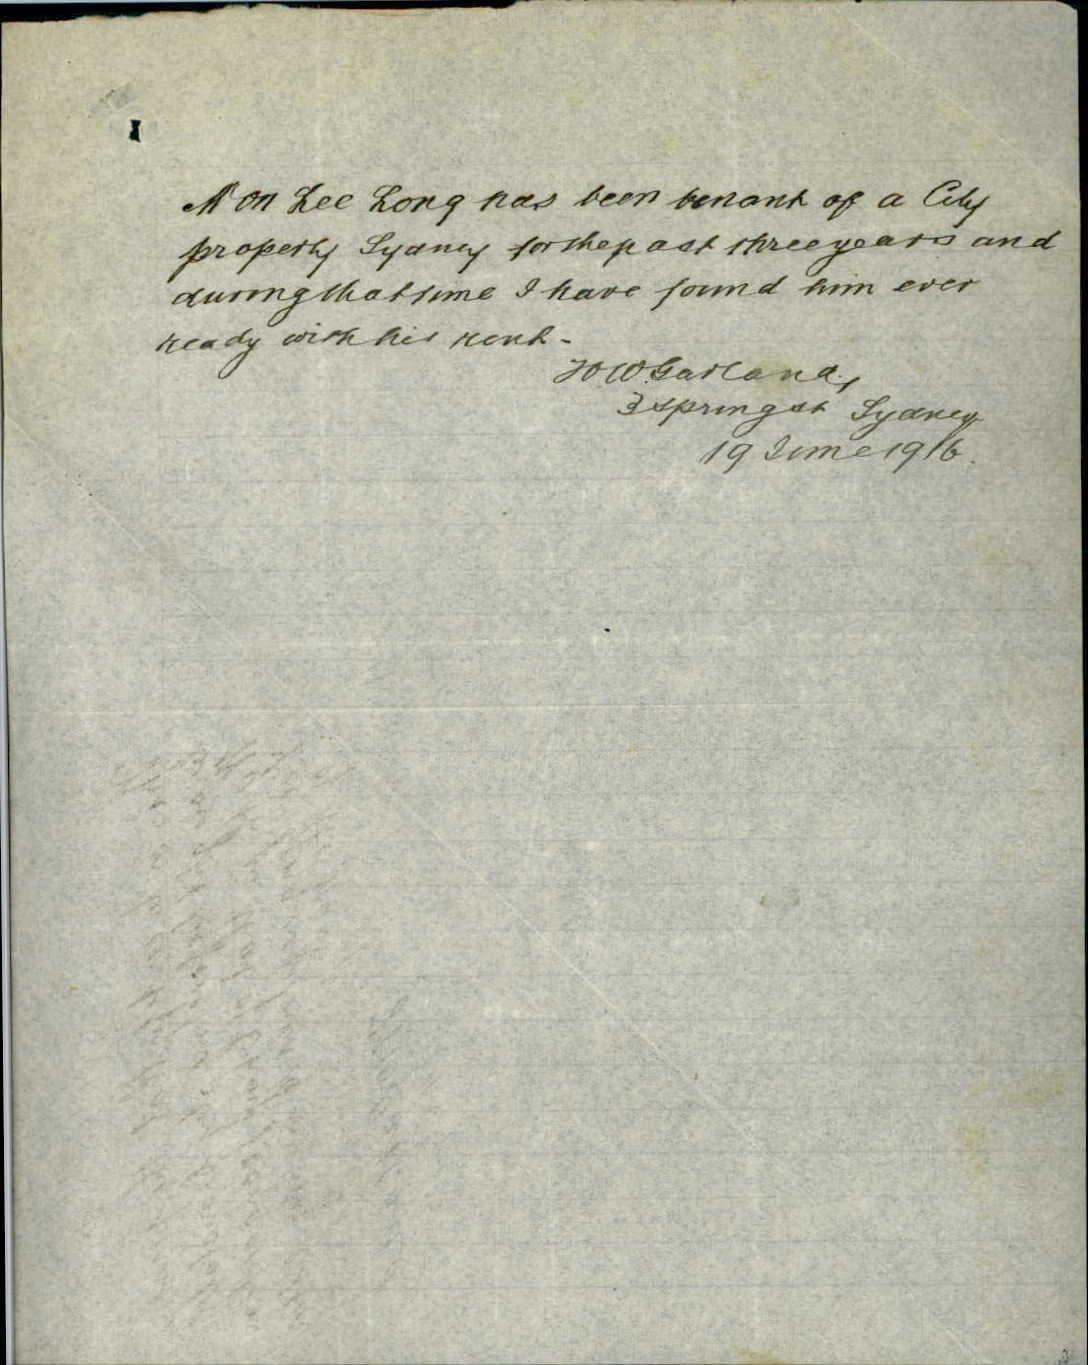 Mon Lee Long has been tenant of a City
property Sydney for the past three years and
during that time I have found him ever
ready with his rent -
W Garland,
3 Spring st Sydney
19 June 1916.